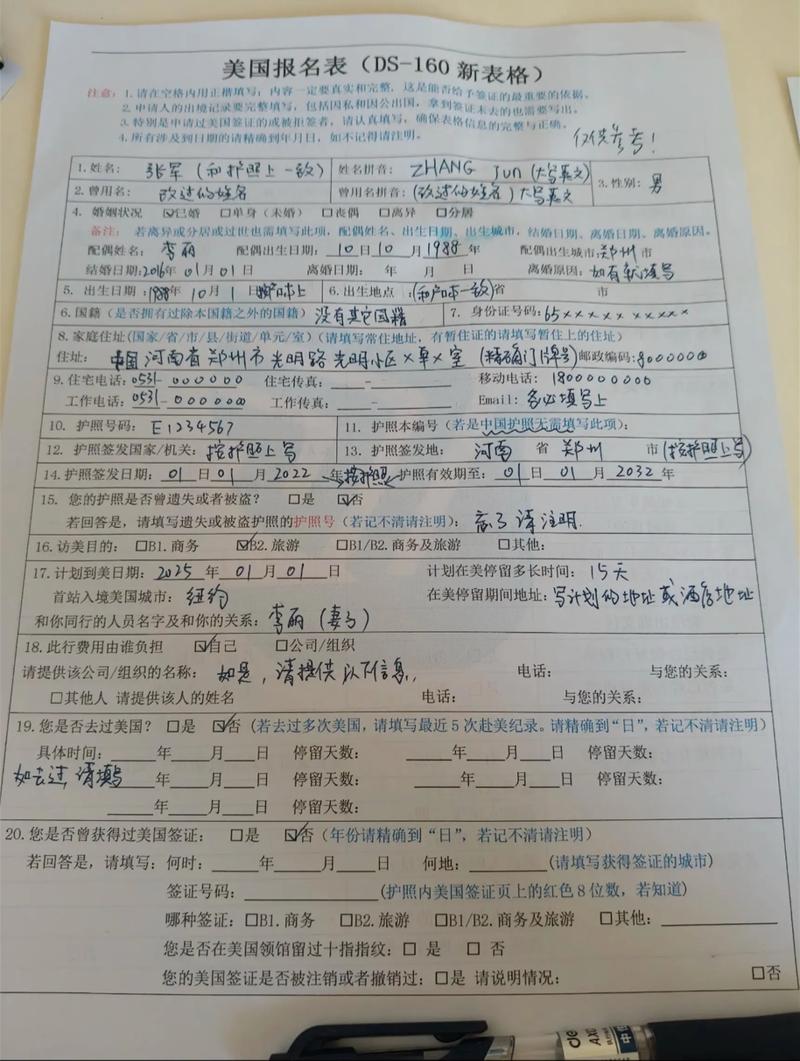 美国报名表（DS-160 新表格）
注意：1.请在空格内用正楷填写；内容一定要真实和完整，这是能否给予签证的最重要的依据。
2.申请人的出境记录要完整填写，包括因私和因公出国，拿到签证未去的也需要写出。
3.特别是申请过美国签证的或被拒签者，请认真填写，确保表格信息的完整与正确。
4.所有涉及到日期的请精确到年月日，如不记得请注明。
仅供参考！
1.姓名：张军（和护照上一致） 姓名拼音：ZHANG Jun（大写英文） 3.性别：男
2.曾用名：改过的姓名 曾用名拼音：（改过的姓名）大写英文
4. 婚姻状况 ☑已婚 □单身（未婚） □丧偶 □离异 □分居
备注：若离异或分居或过世也需填写此项，配偶姓名、出生日期、出生城市，结婚日期、离婚日期、离婚原因。
配偶姓名：李丽 配偶出生日期：10日10月1988年 配偶出生城市：郑州市
结婚日期：2016年01月01日 离婚日期： 年 月 日 离婚原因：如有就填写
5. 出生日期：1988年10月1日 户口本上 6.出生地点：（和户口本一致）省 市
6.国籍（是否拥有过除本国籍之外的国籍）没有其它国籍 7. 身份证号码：65××××××××××
8.家庭住址(国家/省/市/县/街道/单元/室)（请填写常住地址，有暂住证的请填写暂住上的地址）
住址：中国河南省郑州市光明路光明小区×单×室（精确门牌号）邮政编码：8000000
9.住宅电话：0531-000000 住宅传真：____-________ 移动电话：1800000000
工作电话：0531-0000000 工作传真：____-________ Email：务必填写上
10. 护照号码：E1234567 11. 护照本编号（若是中国护照无需填写此项）：
12. 护照签发国家/机关：按护照上写 13. 护照签发地：河南省 郑州 市（按护照上写）
14.护照签发日期：01日01月2022年 按护照 护照有效期至：01日01月2032年
15. 您的护照是否曾遗失或者被盗？ □是 ☑否
若回答是，请填写遗失或被盗护照的护照号（若记不清请注明）：忘了请注明.
16.访美目的：□B1.商务 ☑B2.旅游 □B1/B2.商务及旅游 □其他：
17.计划到美日期：2025年01月01日 计划在美停留多长时间：15天
首站入境美国城市：纽约 在美停留期间地址：写计划的地址或酒店地址
和你同行的人员名字及和你的关系：李丽（妻子）
18.此行费用由谁负担 ☑自己 □公司/组织
请提供该公司/组织的名称：如是，请提供以下信息， 电话： 与您的关系：
□其他人 请提供该人的姓名 电话： 与您的关系：
19.您是否去过美国？ □是 ☑否（若去过多次美国，请填写最近5次赴美纪录。请精确到“日”，若记不清请注明）
具体时间：____年____月____日 停留天数： ____年____月____日 停留天数：
如去过，请填写____年____月____日 停留天数： ____年____月____日 停留天数：
____年____月____日 停留天数：
20.您是否曾获得过美国签证： □是 ☑否（年份请精确到“日”，若记不清请注明）
若回答是，请填写：何时：____年____月____日 何地：________(请填写获得签证的城市)
签证号码：____________(护照内美国签证页上的红色8位数，若知道)
哪种签证：□B1.商务 □B2.旅游 □B1/B2.商务及旅游 □其他：____________
您是否在美国领馆留过十指指纹：□ 是 □ 否
您的美国签证是否被注销或者撤销过：□是 请说明情况： □否